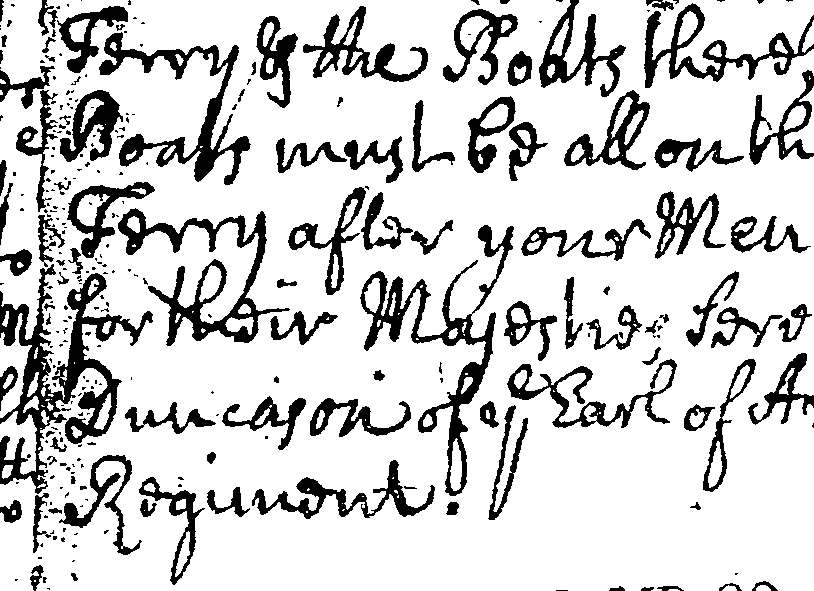 Ferry & the Boats there,
Boats must be all on th
Ferry after your Men
for their Majesties Serv
Duncason of yᵉ Earl of Ar
Regiment.